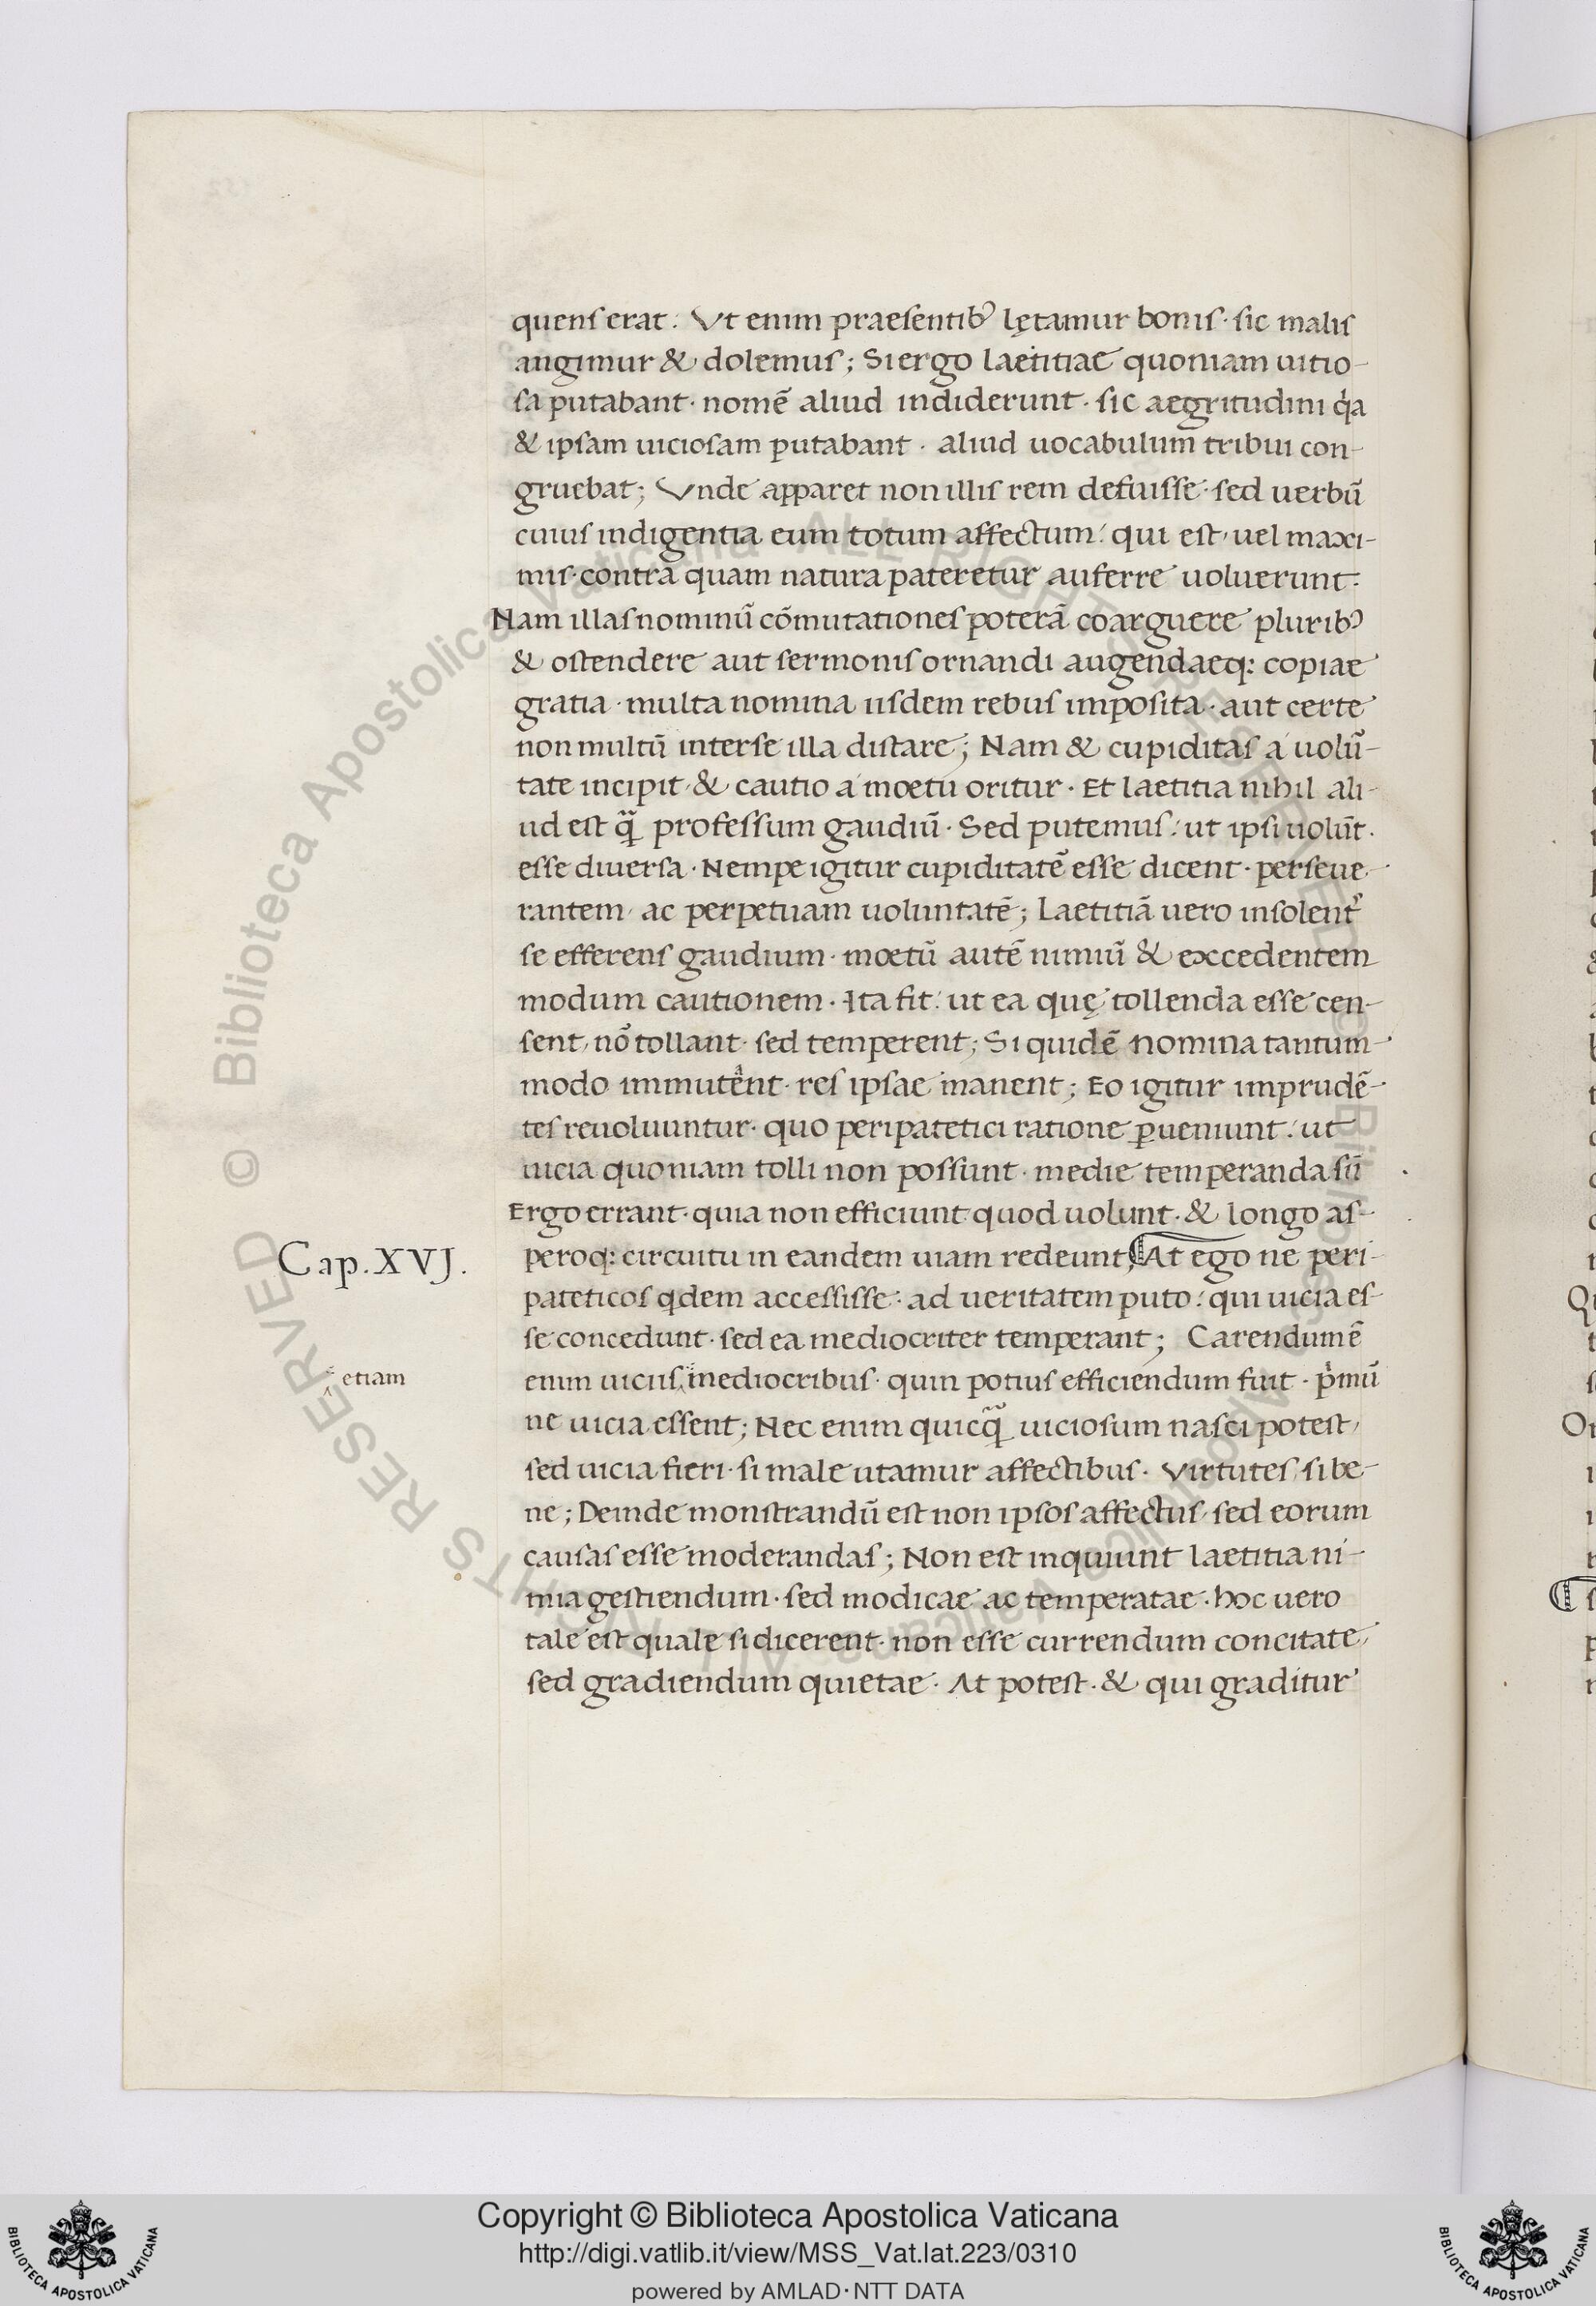 quens erat. Vt enim praesentibꝰ lętamur bonis· sic malis
angimur & dolemus; Si ergo laetitiae quoniam uitio-
sa putabant· nomē aliud indiderunt· sic aegritudini qͥa
& ipsam uiciosam putabant · aliud uocabulum tribui con-
gruebat; Vnde apparet non illis rem defuisse· sed uerbū
cuius indigentia eum totum affectum: qui est, uel maxi-
mis· contra quam natura pateretur auferre uoluerunt.
Nam illas nominū cōmutationes poterā coarguere pluribꝰ
& ostendere aut sermonis ornandi augendaeq: copiae
gratia · multa nomina iisdem rebus imposita · aut certe
non multū inter se illa distare; Nam & cupiditas a uolū-
tate incipit, & cautio a moetu oritur · Et laetitia nihil ali-
ud est qᷓ professum gaudiū · Sed putemus: ut ipsi uolūt.
esse diuersa · Nempe igitur cupiditatē esse dicent · perseue-
rantem, ac perpetuam uoluntatē; Laetitiā uero insolent᷑
se efferens gaudium · moetū autē nimiū & exccedentem
modum cautionem · Ita fit: ut ea quę tollenda esse cen-
sent, nō tollant· sed temperent; Si quidē nomina tantum-
modo immutēnt · res ipsae manent; Eo igitur imprudē-
tes reuoluuntur· quo peripatetici ratione ꝑueniunt: ut
uicia quoniam tolli non possunt · medie temperanda sū
Ergo errant· quia non efficiunt quod uolunt· & longo as-
Cap. XVJ. peroq: circuitu in eandem uiam redeunt; At ego ne peri-
pateticos qdem accessisse· ad ueritatem puto: qui uicia es-
se concedunt · sed ea mediocriter temperant; Carendum ē
etiam
enim uiciis mediocribus· quin potius efficiendum fuit · pͥmū
ne uicia essent; Nec enim quicqᷓ uiciosum nasci potest,
sed uicia fieri · si male utamur affectibus· Virtutes, si be-
ne; Deinde monstrandū est non ipsos affectus, sed eorum
causas esse moderandas; Non est inquiunt laetitia ni-
mia gestiendum · sed modicae ac temperatae · hoc uero
tale est quale si dicerent· non esse currendum concitate,
sed gradiendum quietae· At potest· & qui graditur
Copyright © Biblioteca Apostolica Vaticana
http://digi.vatlib.it/view/MSS_Vat.lat.223/0310
powered by AMLAD·NTT DATA
BIBLIOTECA APOSTOLICA VATICANA
BIBLIOTECA APOSTOLICA VATICANA
© Biblioteca Apostolica Vaticana ALL RIGHTS RESERVED